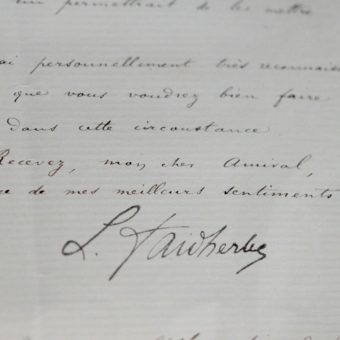 me permettrait de les mettre
ai personnellement très reconnais
que vous voudrez bien faire
dans cette circonstance
Recevez, mon cher Amiral,
ce de mes meilleurs sentiments
L. Faidherbe